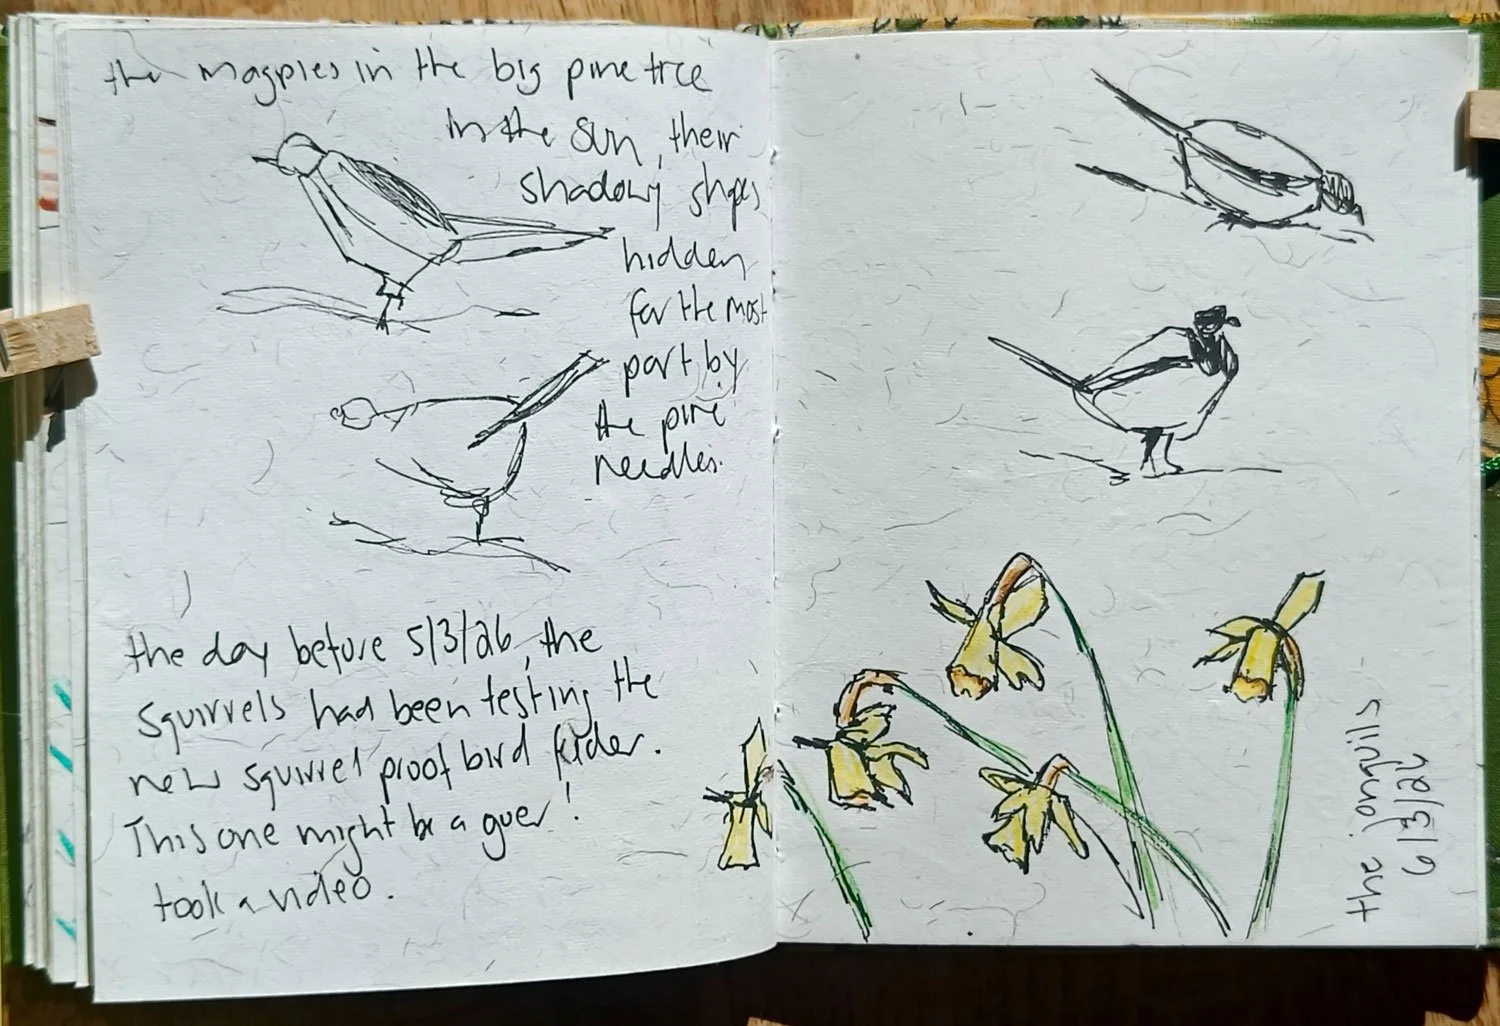 the magpies in the big pine tree
in the sun, their
shadowy shapes
hidden
for the most
part by
the pine
needles.
the day before 5/3/26, the
squirrels had been testing the
new squirrel proof bird feeder.
This one might be a goer!
took a video.
the jonquills
6/3/26